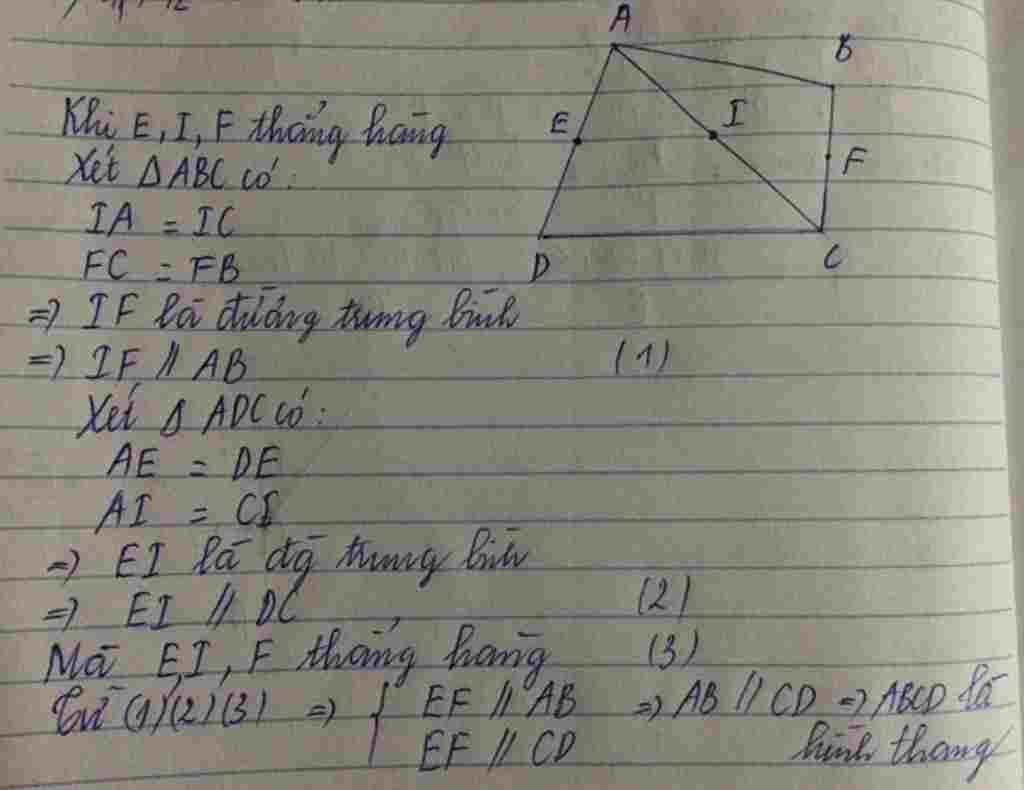 A
B
Khi E, I, F thẳng hàng
E
I
Xét Δ ABC có:
F
IA = IC
FC = FB
D
C
=> IF là đường trung bình
=> IF // AB (1)
Xét Δ ADC có:
AE = DE
AI = CI
=> EI là đg trung bình
=> EI // DC (2)
Mà E, I, F thẳng hàng (3)
Từ (1)(2)(3) => { EF // AB => AB // CD => ABCD là
EF // CD hình thang